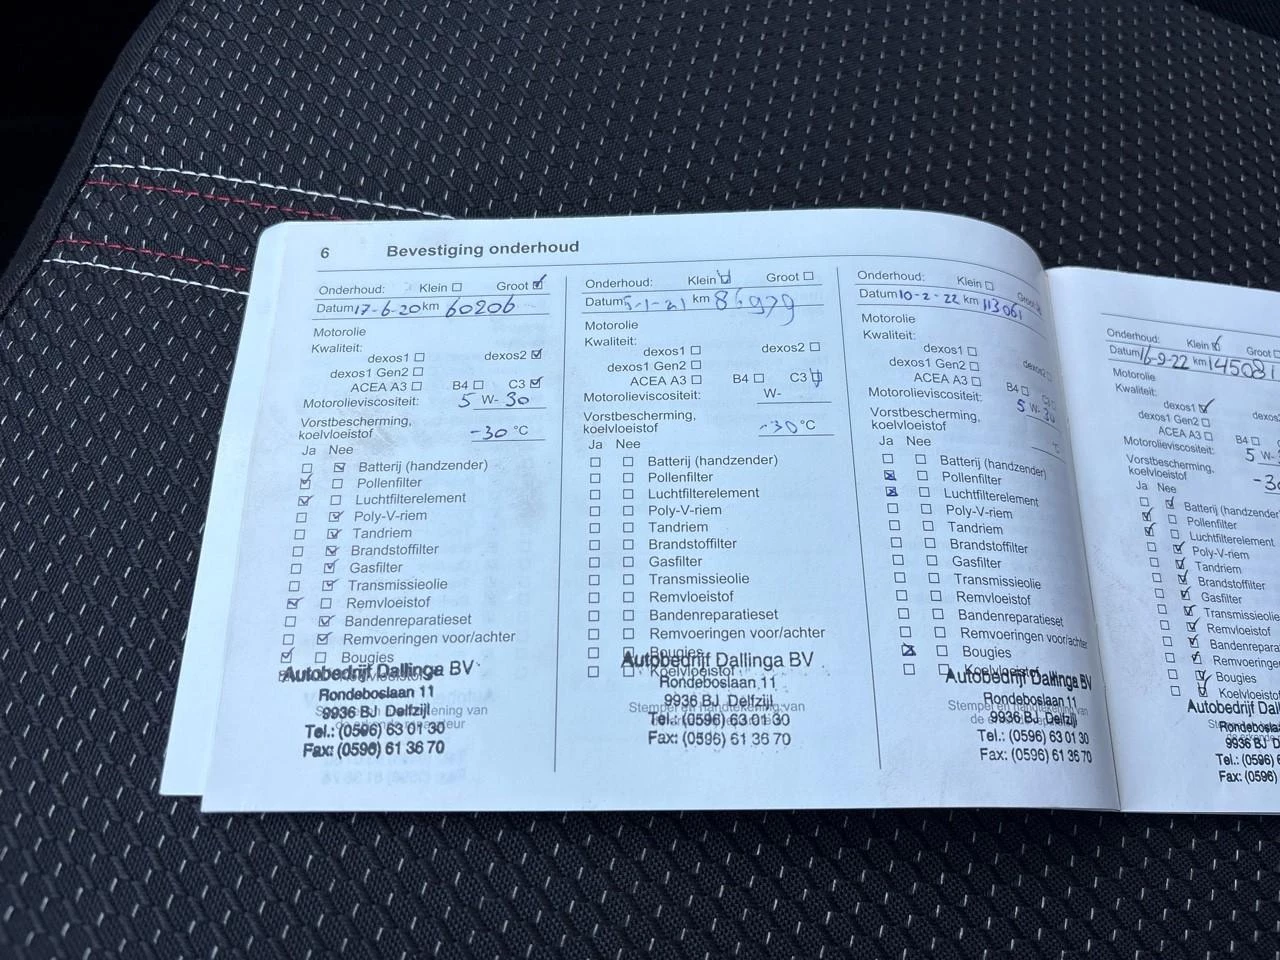 6 Bevestiging onderhoud
Onderhoud: Klein Groot
Datum 17-6-20 km 60206
Motorolie
Kwaliteit:
dexos1 dexos2
dexos1 Gen2
ACEA A3 B4 C3
Motorolieviscositeit: 5 W- 30
Vorstbescherming,
koelvloeistof -30 °C
Ja Nee
Batterij (handzender)
Pollenfilter
Luchtfilterelement
Poly-V-riem
Tandriem
Brandstoffilter
Gasfilter
Transmissieolie
Remvloeistof
Bandenreparatieset
Remvoeringen voor/achter
Bougies
Autobedrijf Dallinga BV
Rondeboslaan 11
9936 BJ Delfzijl
Tel.: (0596) 63 01 30
Fax: (0596) 61 36 70
Onderhoud: Klein Groot
Datum 5-1-21 km 86979
Motorolie
Kwaliteit:
dexos1 dexos2
dexos1 Gen2
ACEA A3 B4 C3
Motorolieviscositeit: W-
Vorstbescherming,
koelvloeistof -30 °C
Ja Nee
Batterij (handzender)
Pollenfilter
Luchtfilterelement
Poly-V-riem
Tandriem
Brandstoffilter
Gasfilter
Transmissieolie
Remvloeistof
Bandenreparatieset
Remvoeringen voor/achter
Bougies
Koelvloeistof
Autobedrijf Dallinga BV
Rondeboslaan 11
9936 BJ Delfzijl
Stempel en handtekening van
Tel.: (0596) 63 01 30
Fax: (0596) 61 36 70
Onderhoud: Klein Groot
Datum 10-2-22 km 113061
Motorolie
Kwaliteit:
dexos1 dexos2
dexos1 Gen2
ACEA A3 B4 C3
Motorolieviscositeit: 5 W- 30
Vorstbescherming,
koelvloeistof °C
Ja Nee
Batterij (handzender)
Pollenfilter
Luchtfilterelement
Poly-V-riem
Tandriem
Brandstoffilter
Gasfilter
Transmissieolie
Remvloeistof
Bandenreparatieset
Remvoeringen voor/achter
Bougies
Koelvloeistof
Autobedrijf Dallinga BV
Rondeboslaan 11
Stempel en handtekening van
9936 BJ Delfzijl
Tel.: (0596) 63 01 30
Fax: (0596) 61 36 70
Onderhoud: Klein Groot
Datum 16-9-22 km 145081
Motorolie
Kwaliteit:
dexos1 dexos
dexos1 Gen2
ACEA A3 B4
Motorolieviscositeit: 5 W-
Vorstbescherming,
koelvloeistof -30
Ja Nee
Batterij (handzender
Pollenfilter
Luchtfilterelement
Poly-V-riem
Tandriem
Brandstoffilter
Gasfilter
Transmissieolie
Remvloeistof
Bandenrepara
Remvoeringen
Bougies
Koelvloeistof
Autobedrijf Dal
Rondebosla
9936 BJ D
Tel.: (0596)
Fax: (0596)